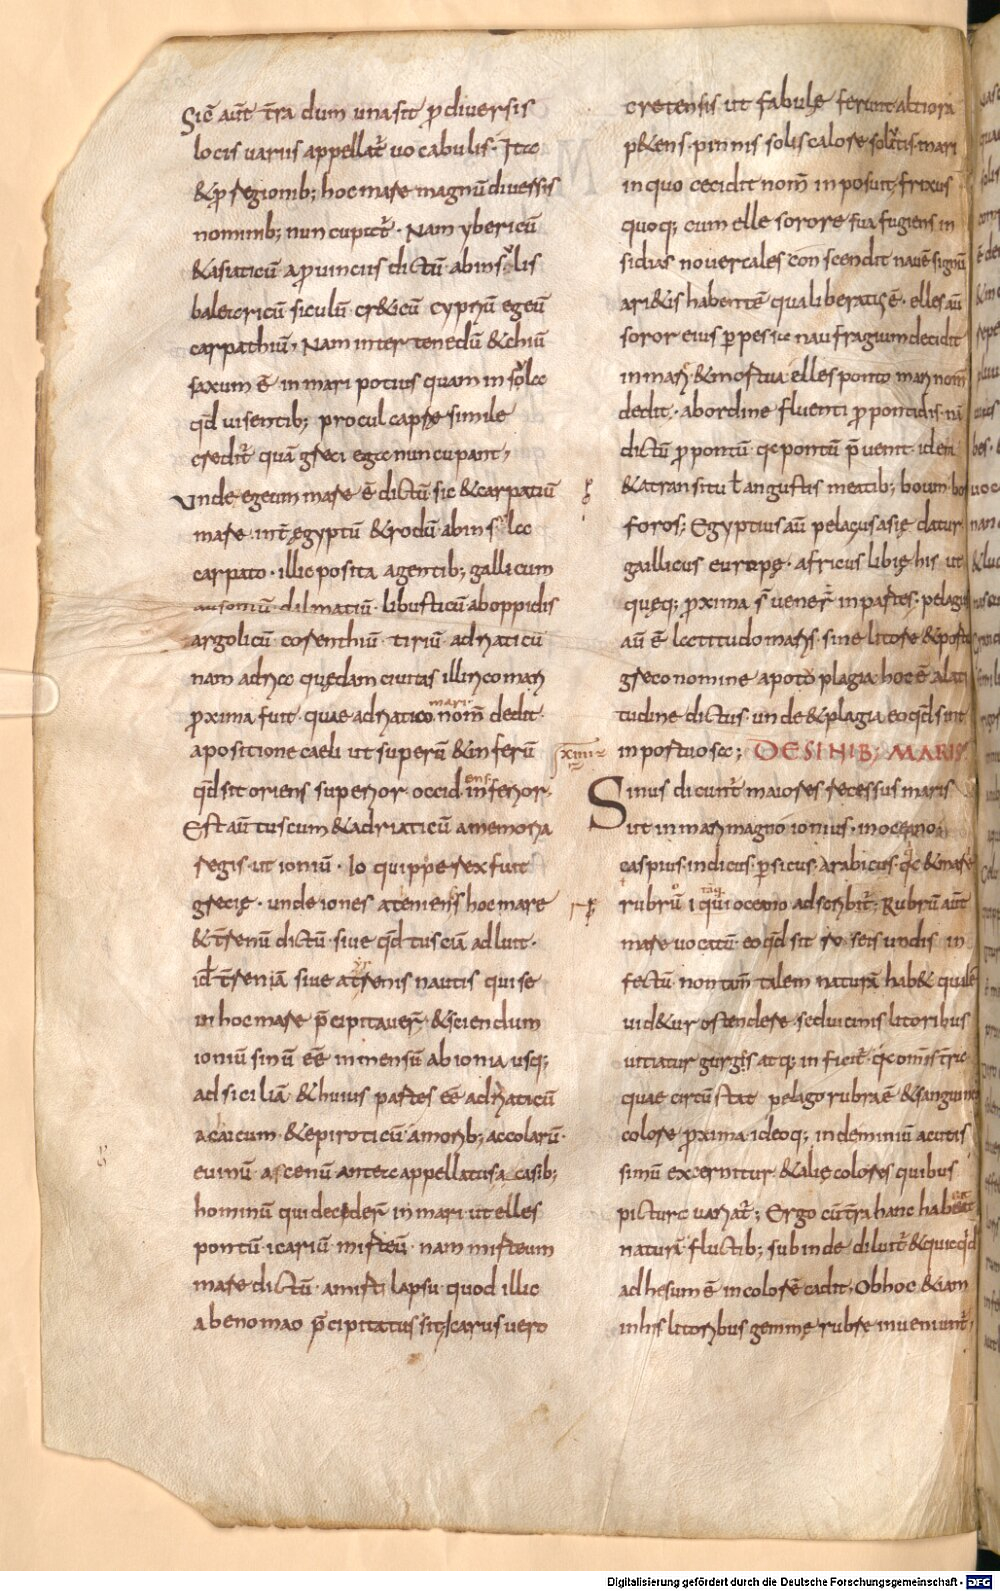 Sic̄ aūt tr̄a dum una sit ꝑ diuersis
locis uariis appellat᷑ uocabulis· Ita
&ꝑ regionib; hoc mare magnū diuersis
nominib; nuncupat᷑· Nam ybericū
&asiaticū a ꝓuinciis dictū ab insulis
balearicū siculū cr&icū cypriū egeū
carpathiū, Nam inter tenedū &chiū
saxum ē in mari potius quam insola
qd̄ uisentib; procul caprę simile
credit᷑ quā greci ega nuncupant,
Vnde egeum mare ē dictū sic &carpatiū
mare· int̄ ęgyptū &rodū ab insola
carpato· illic posita a gentib; gallicum
ausoniū dilmatiū· libusticū ab oppidis
argolicū corenthiū· tiriū adriaticū
nam adria quędam ciuitas illirico mari
ꝓxima fuit· quae adriatico mari nom̄ dedit·
a positione caeli ut superū &inferū
qd̄ sit oriens superior occid ens inferior,
Est aū tuscum &adriaticū a memoria
regis· ut ioniū· Io quippe rex fuit
grecię· unde iones atenienses hoc mare
&tr̄renū dictū· siue qd̄ tusciā adluit·
id̄ tr̄reniā siue a tyrrenis nautis qui se
in hoc mare p̄cipitauer̄· &sciendum
ioniū sinū ēē inmensū ab ionia usq;
ad siciliā &huius partes ēē adriaticū
acaicum·&epiroticū amorib; accolarū·
euinū ascenū antea appellatus a casib;
hominū qui decider̄ in mari· ut elles
pontū· icariū· mirteū· nam mirteum
mare dictū· a mirti lapsu· quod illic
ab enomao p̄cipitatus sit, Icarus uero
cretensis ut fabulę ferunt altiora
p&ens· pinnis solis calore solutis mari
in quo cecidit nom̄ inposuit, frixus
quoq; cum elle sorore sua fugiens in
sidias nouercales conscendit nauē signū
ari&is habentē qua liberatus ē· elles aū
soror eius perpessa naufragium decidit
in mari &mortua elles ponto mari nom̄
dedit· ab ordine fluenti propontidis· nā
dictū propontū qa pontū p̄uenit· idem
&a transitu t̄ angustis meatib; boum· bos
foros; Egyptius aū pelagus asię datur
gaillicus europę· africus libię his ut
quęq; ꝓxima sr̄ uener̄ in partes· pelagus
aū ē latitudo maris· sine litore &portu
greco nomine apoto plagia hoc ē a lati
tudine dictus· unde &plagia eo qd̄ sint
inportuosa;
XIIII
DE SINIB; MARIS
Sinus dicunt᷑ maiores recessus maris
ut in mari magno ionius· in oceano
caspius· indicus· persicus· arabicus· &mare
rubrū qui oceano adscribit᷑; Rubrū aūt
mare uocatū eo qd̄ sit roseis undis in
fectū· non tam̄ talem naturā hab& qualē
uid&ur ostendere· sed uicinis litoribus
uitiatur gurges atq; inficit᷑ qa om̄is tr̄ra
quae circūstat pelago rubra ē &sanguineo
colore ꝓxima· ideoq; inde miniū acutis
simū excernitur &alię colores quibus
pictura uariat᷑; Ergo cū tr̄a hanc habeat
naturā fluctib; subinde diluit᷑ &quicqd̄
adhesum ē in colorē cadit, Ob hoc &iam
in his litoribus gemmę rubre inueniunt᷑,
Digitalisierung gefördert durch die Deutsche Forschungsgemeinschaft - DFG